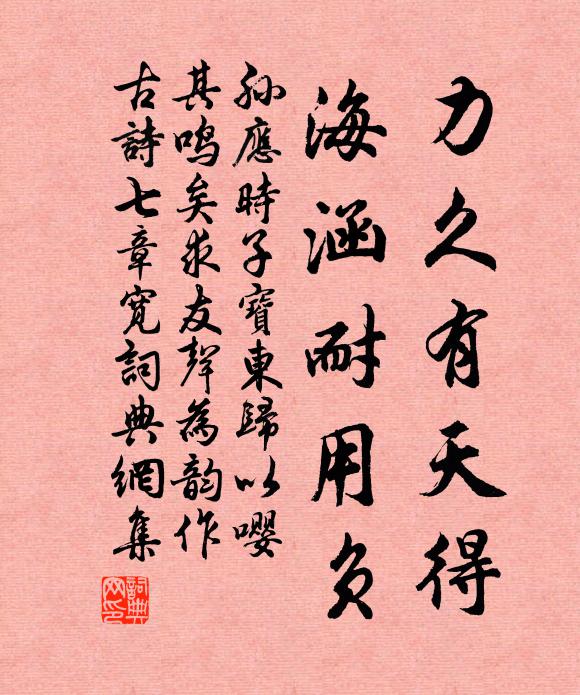 力久有天得
海涵耐用負
孫應時子寶東歸以嚶
其鳴矣求友聲為韵作
古詩七章寬詞典網集
詞典
网印